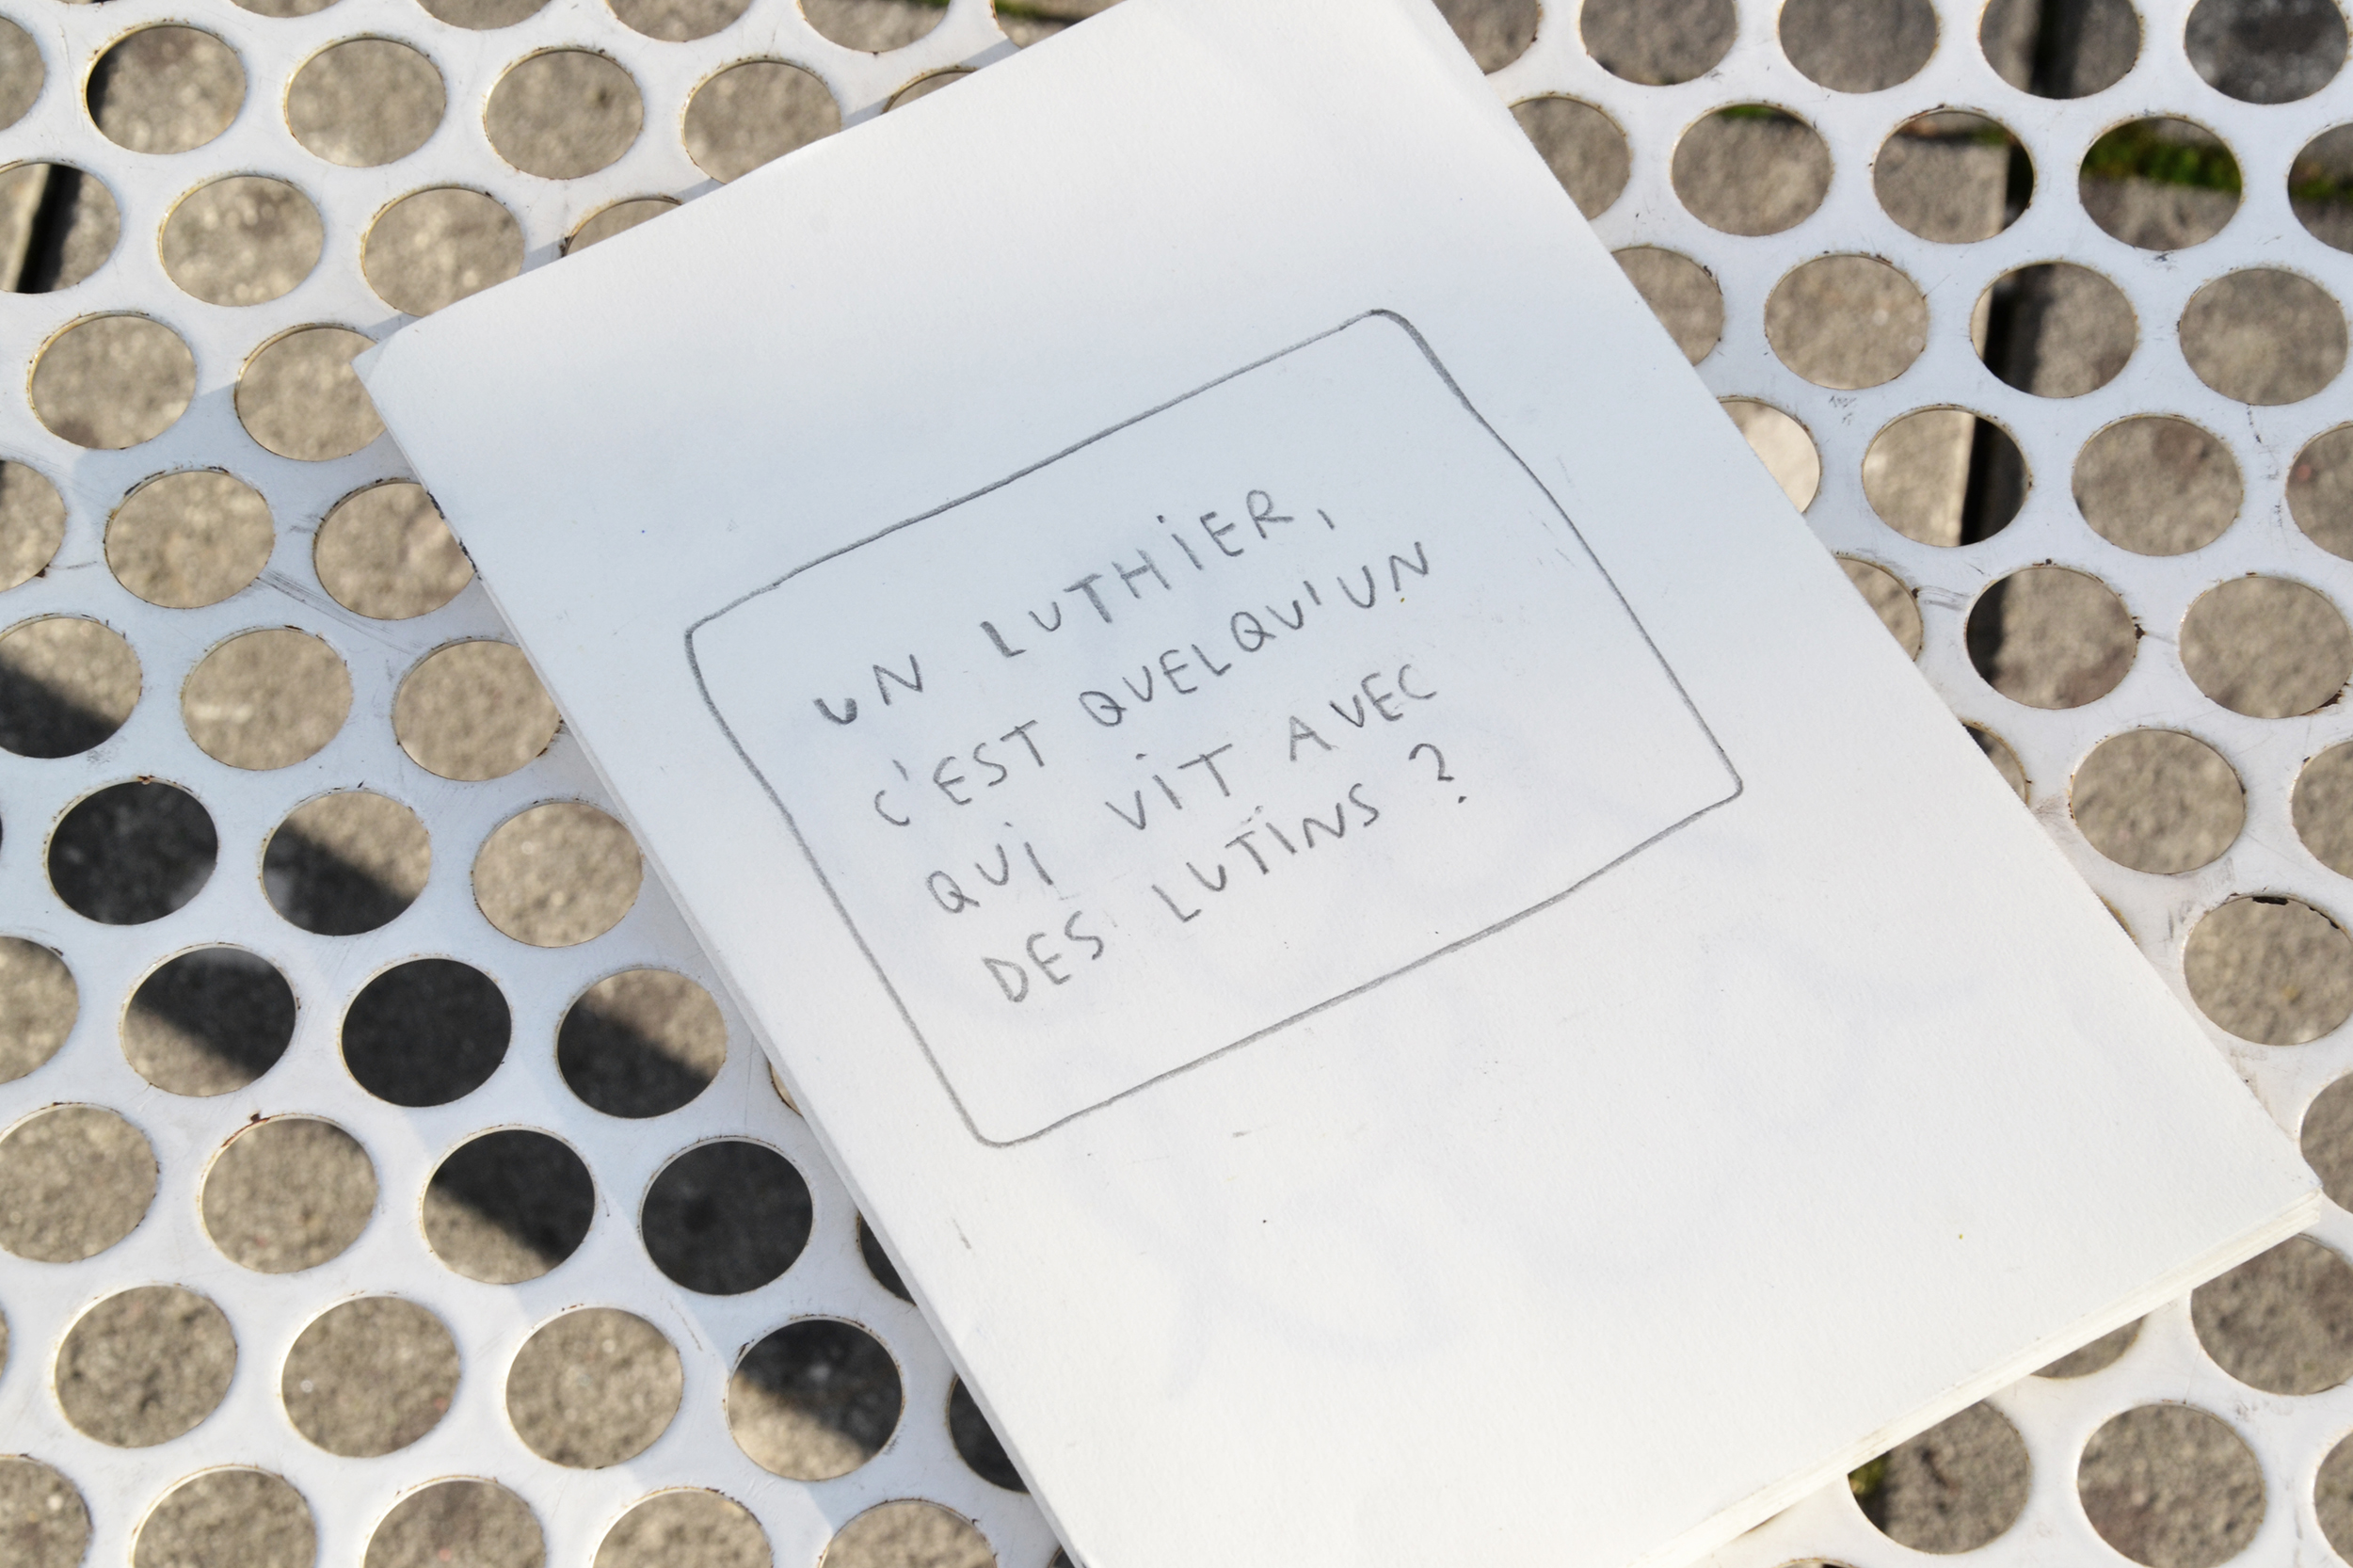 UN LUTHIER,
C'EST QUELQU'UN
QUI VIT AVEC
DES LUTINS ?